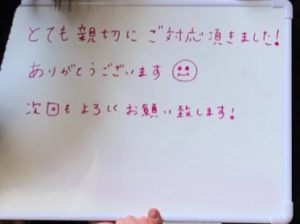 とても親切にご対応頂きました!
ありがとうございます
次回もよろしくお願い致します!